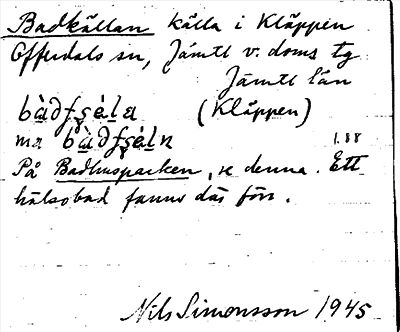 Badkällan källa i Kläppen
Offerdals sn, Jämtl v. doms tg
Jämtl län
bàdfşè̱la (Kläppen)
ma bàdfşèḻn 1.88
På Badhusparken, se denna. Ett
hälsobad fanns där förr.
Nils Simonsson 1945